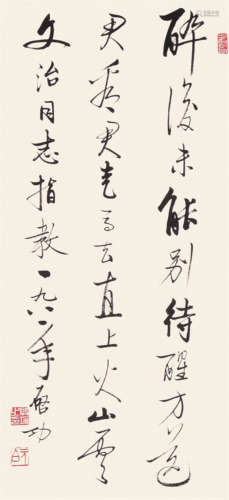 醉後未能别待醒方送
君看君走马去直上火山云
文治同志指教一九八二年启功